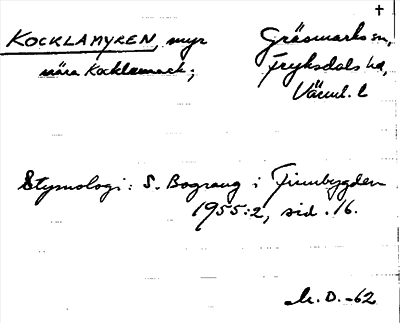 †
KOCKLAMYREN, myr
nära Kocklamack;
Gräsmarks sn,
Fryksdals hd,
Värml. l
Etymologi: S. Bograng i Finnbygden
1955:2, sid. 16.
M. D. -62